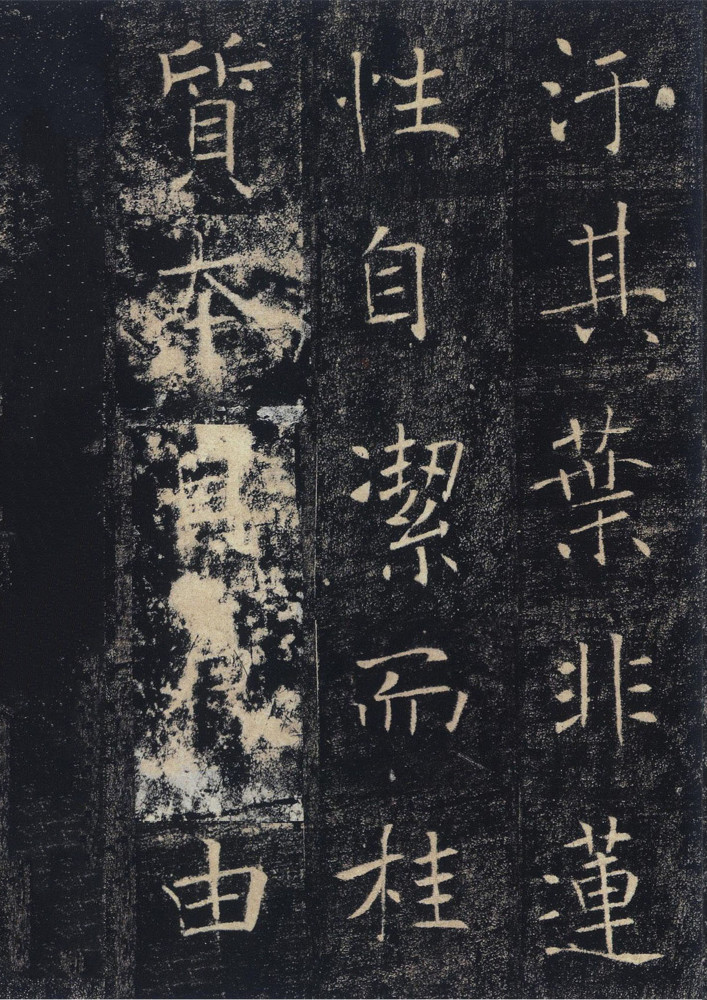 汙其葉非蓮
性自潔而桂
質本由